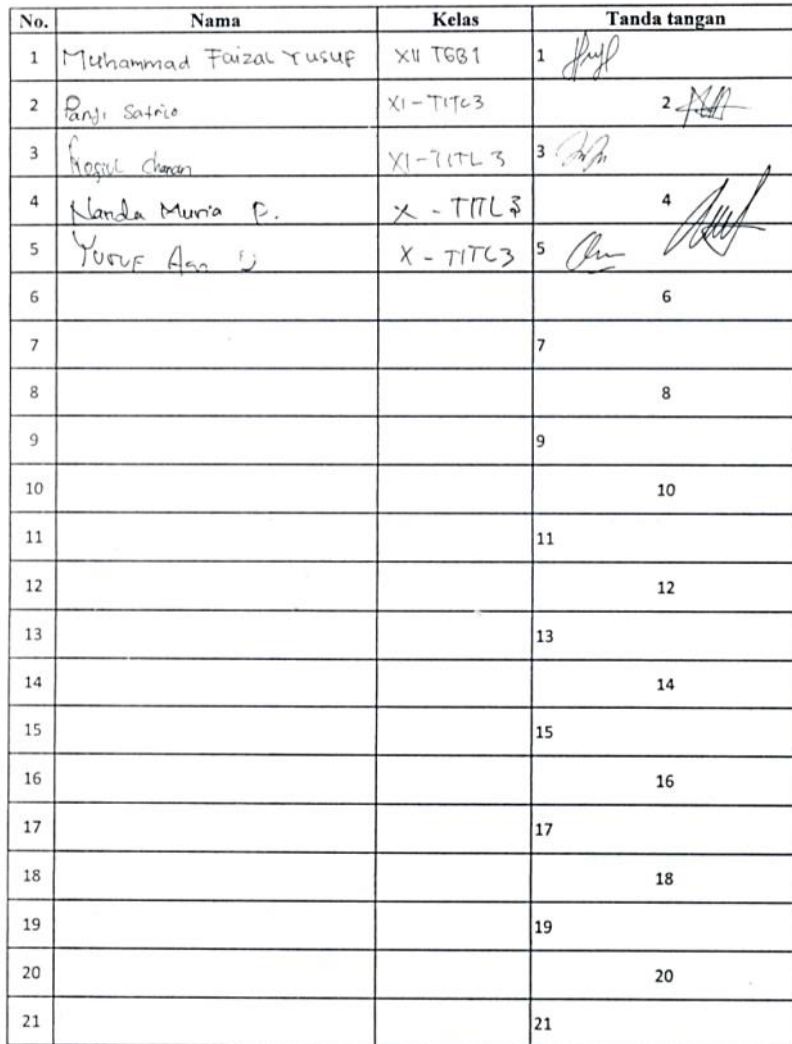 No. Nama Kelas Tanda tangan
1 Muhammad Faizal Yusuf XII TGB1 1
2 Panji Satrio XI-TITL3 2
3 XI-TITL 3 3
4 Nanda Muria P. X - TITL3 4
5 Yusuf X - TITL3 5
6 6
7 7
8 8
9 9
10 10
11 11
12 12
13 13
14 14
15 15
16 16
17 17
18 18
19 19
20 20
21 21